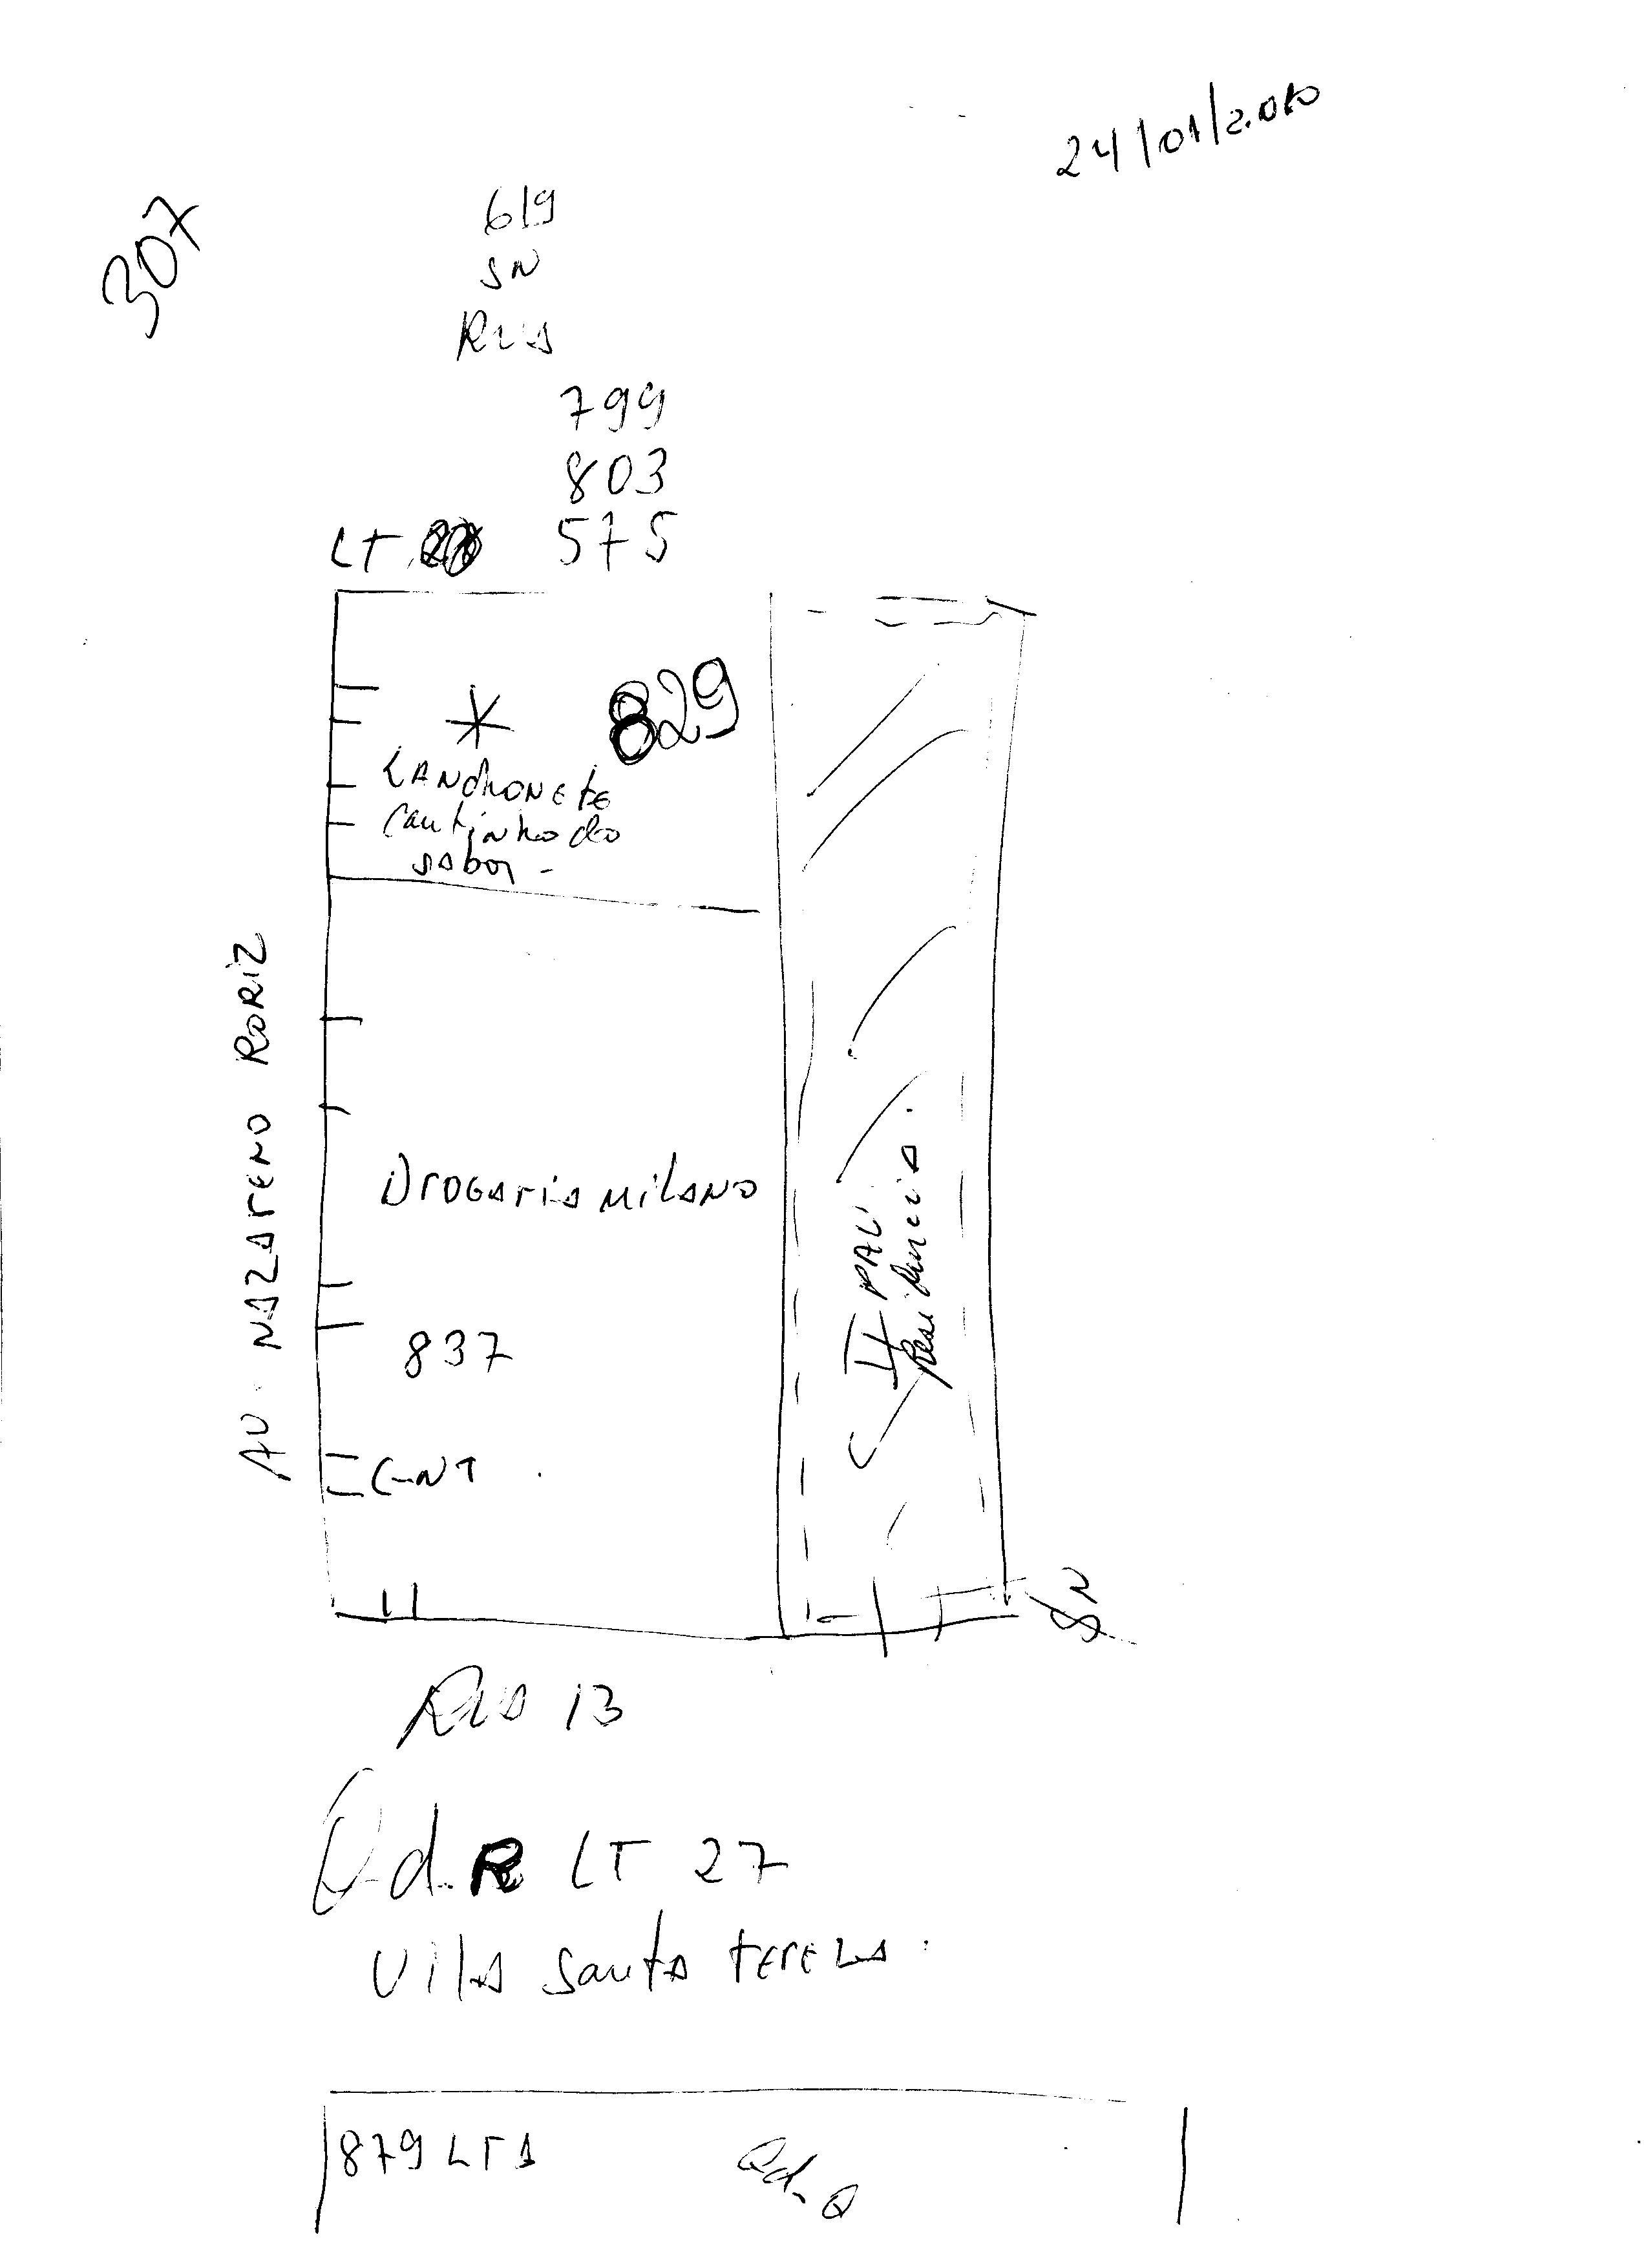 24/01/2.010
307
619
SN
RUA
799
803
575
LT.
829
LANCHONETE
Cantinho do
sabor -
AV. NAZARENO RORIZ
Drogaria Milano
II PAV
Residencia.
837
SN
Rua 13
Qd. R LT 27
Vila Santa Tereza.
879 LT 1
Qd. Q